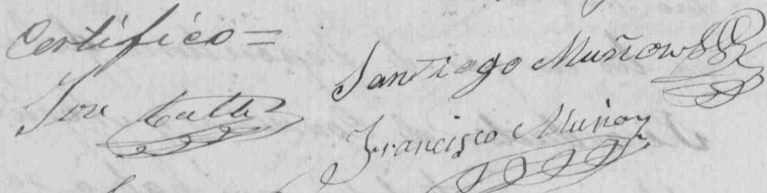 Certifico =
Santiago Muñoz
José
Francisco Muñoz